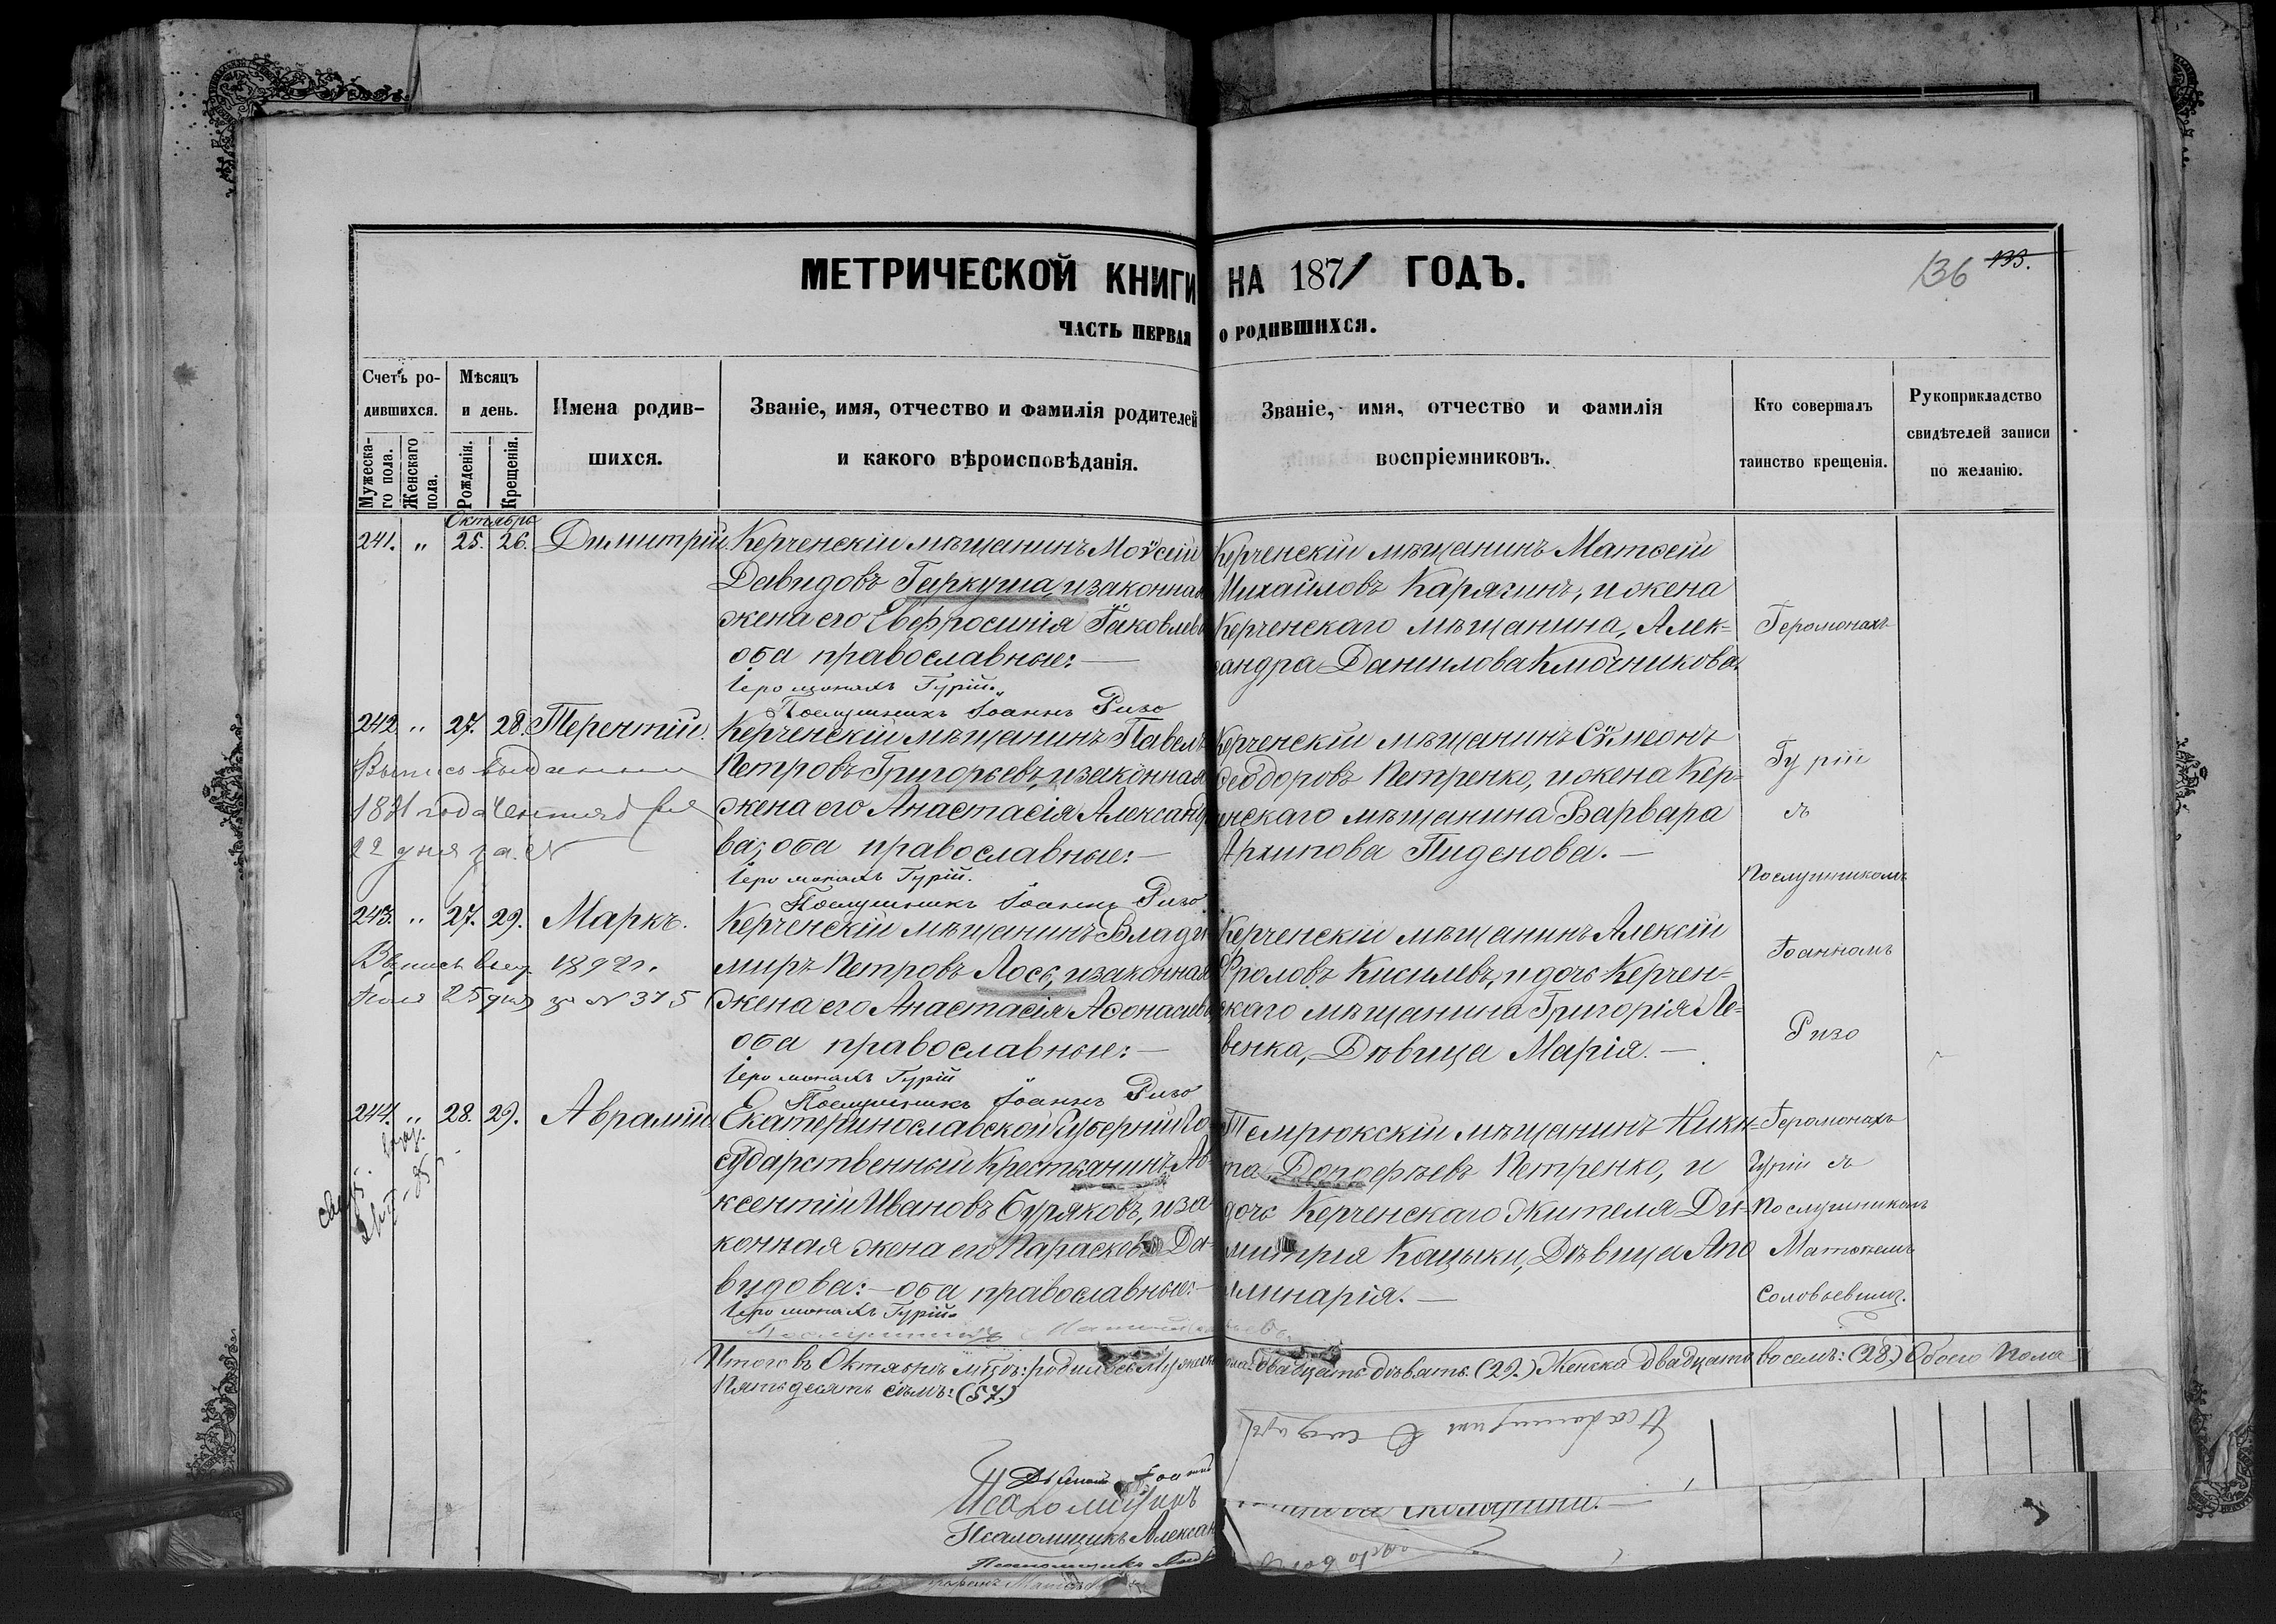 МЕТРИЧЕСКОЙ КНИГИ НА 1871 ГОДЪ.
136 133.
ЧАСТЬ ПЕРВАЯ О РОДИВШИХСЯ.
Счетъ ро-
дившихся.
Мужеска-
го пола.
Женскаго
пола.
Мѣсяцъ
и день.
Рожденія.
Крещенія.
Имена родив-
шихся.
Званіе, имя, отчество и фамилія родителей
и какого вѣроисповѣданія.
Званіе, имя, отчество и фамилія
воспріемниковъ.
Кто совершалъ
таинство крещенія.
Рукоприкладство
свидѣтелей записи
по желанію.
Октябрь
241. „ 25. 26. Димитрій.
Керченскій мѣщанинъ Моѵсей
Давидовъ Гаркуша, и законная
жена его Евфросинія Іаковлева
оба православные:—
Іеромонахъ Гурій.
Послушникъ Іоаннъ Ризо
Керченскій мѣщанинъ Матѳей
Михайловъ Карягинъ, и жена
Керченскаго мѣщанина, Алек=
сандра Данилова Ключникова.
Іеромонахъ
242. „ 27. 28. Терентій.
Выпись выдана
22 дня за N
Керченскій мѣщанинъ Павелъ
Петровъ Григорьевъ, и законная
жена его Анастасія Александро
ва; оба православные:—
Іеромонахъ Гурій.
Послушникъ Іоаннъ Ризо
Керченскій мѣщанинъ Сѵмеонъ
Ѳеодоровъ Петренко, и жена Кер=
ченскаго мѣщанина Варвара
Архипова Пиденова.—
Гурій
съ
Послушникомъ
243. „ 27. 29. Маркъ.
Выпись выд. 1892 г.
Іюля 25 дня за N 375
Керченскій мѣщанинъ Влади
миръ Петровъ Лось, и законная
жена его Анастасія Аѳонасиева
оба православные:—
Іеромонахъ Гурій
Послушникъ Іоаннъ Ризо
Керченскій мѣщанинъ Алексій
Фроловъ Кисилевъ, и дочь Керчен=
скаго мѣщанина Григорія Ле=
венка, Дѣвица Марія.—
Іоанномъ
Ризо
244. „ 28. 29. Аврамій.
Екатеринославской Губерніи Го
сударственный Крестьянинъ Ав
ксентій Ивановъ Буряковъ, и за
конная жена его Параскева Да-
видова:— оба православные:—
Іеромонахъ Гурій.
Темрюкскій мѣщанинъ Ники=
та Дорофѣевъ Петренко, и
дочь Керченскаго Жителя Ди-
митрія Кацыки, Дѣвица Апо
линарія.—
Іеромонахъ
Гурій съ
Послушникомъ
Матѳеемъ
Соловьевымъ.
Итого въ Октябрѣ мѣсѣ: родилось Мужеска пола: двадцать девять. (29.) Женска двадцать восемь: (28.) Обоего пола
Пятьдесять семь: (57.)
Псаломщикъ
Псаломщикъ Алексан